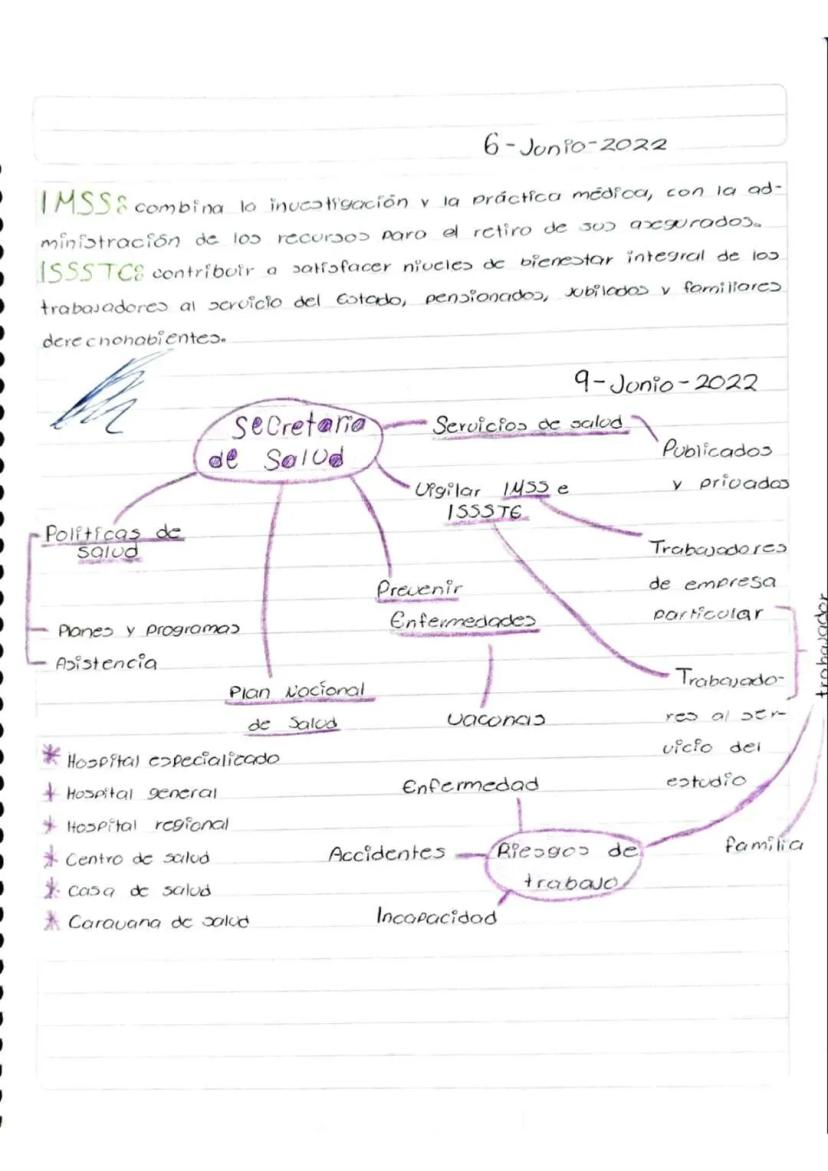 6-Junio-2022
IMSS: combina la investigación y la práctica médica, con la ad-
ministración de los recursos para el retiro de sus asegurados.
ISSSTE: contribuir a satisfacer niveles de bienestar integral de los
trabajadores al servicio del Estado, pensionados, jubilados y familiares
derechohabientes.
9-Junio-2022
Secretaria
de Salud
Servicios de salud
Publicados
y privados
Vigilar IMSS e
ISSSTE
Trabajadores
de empresa
particular
Trabajado-
res al ser-
vicio del
estudio
trabajador
familia
Políticas de
salud
Planes y programas
Asistencia
Prevenir
Enfermedades
vacunas
Plan Nacional
de Salud
* Hospital especializado
* Hospital general
* Hospital regional
* Centro de salud
* Casa de salud
* Caravana de salud
Enfermedad
Accidentes
Riesgos de
trabajo
Incapacidad